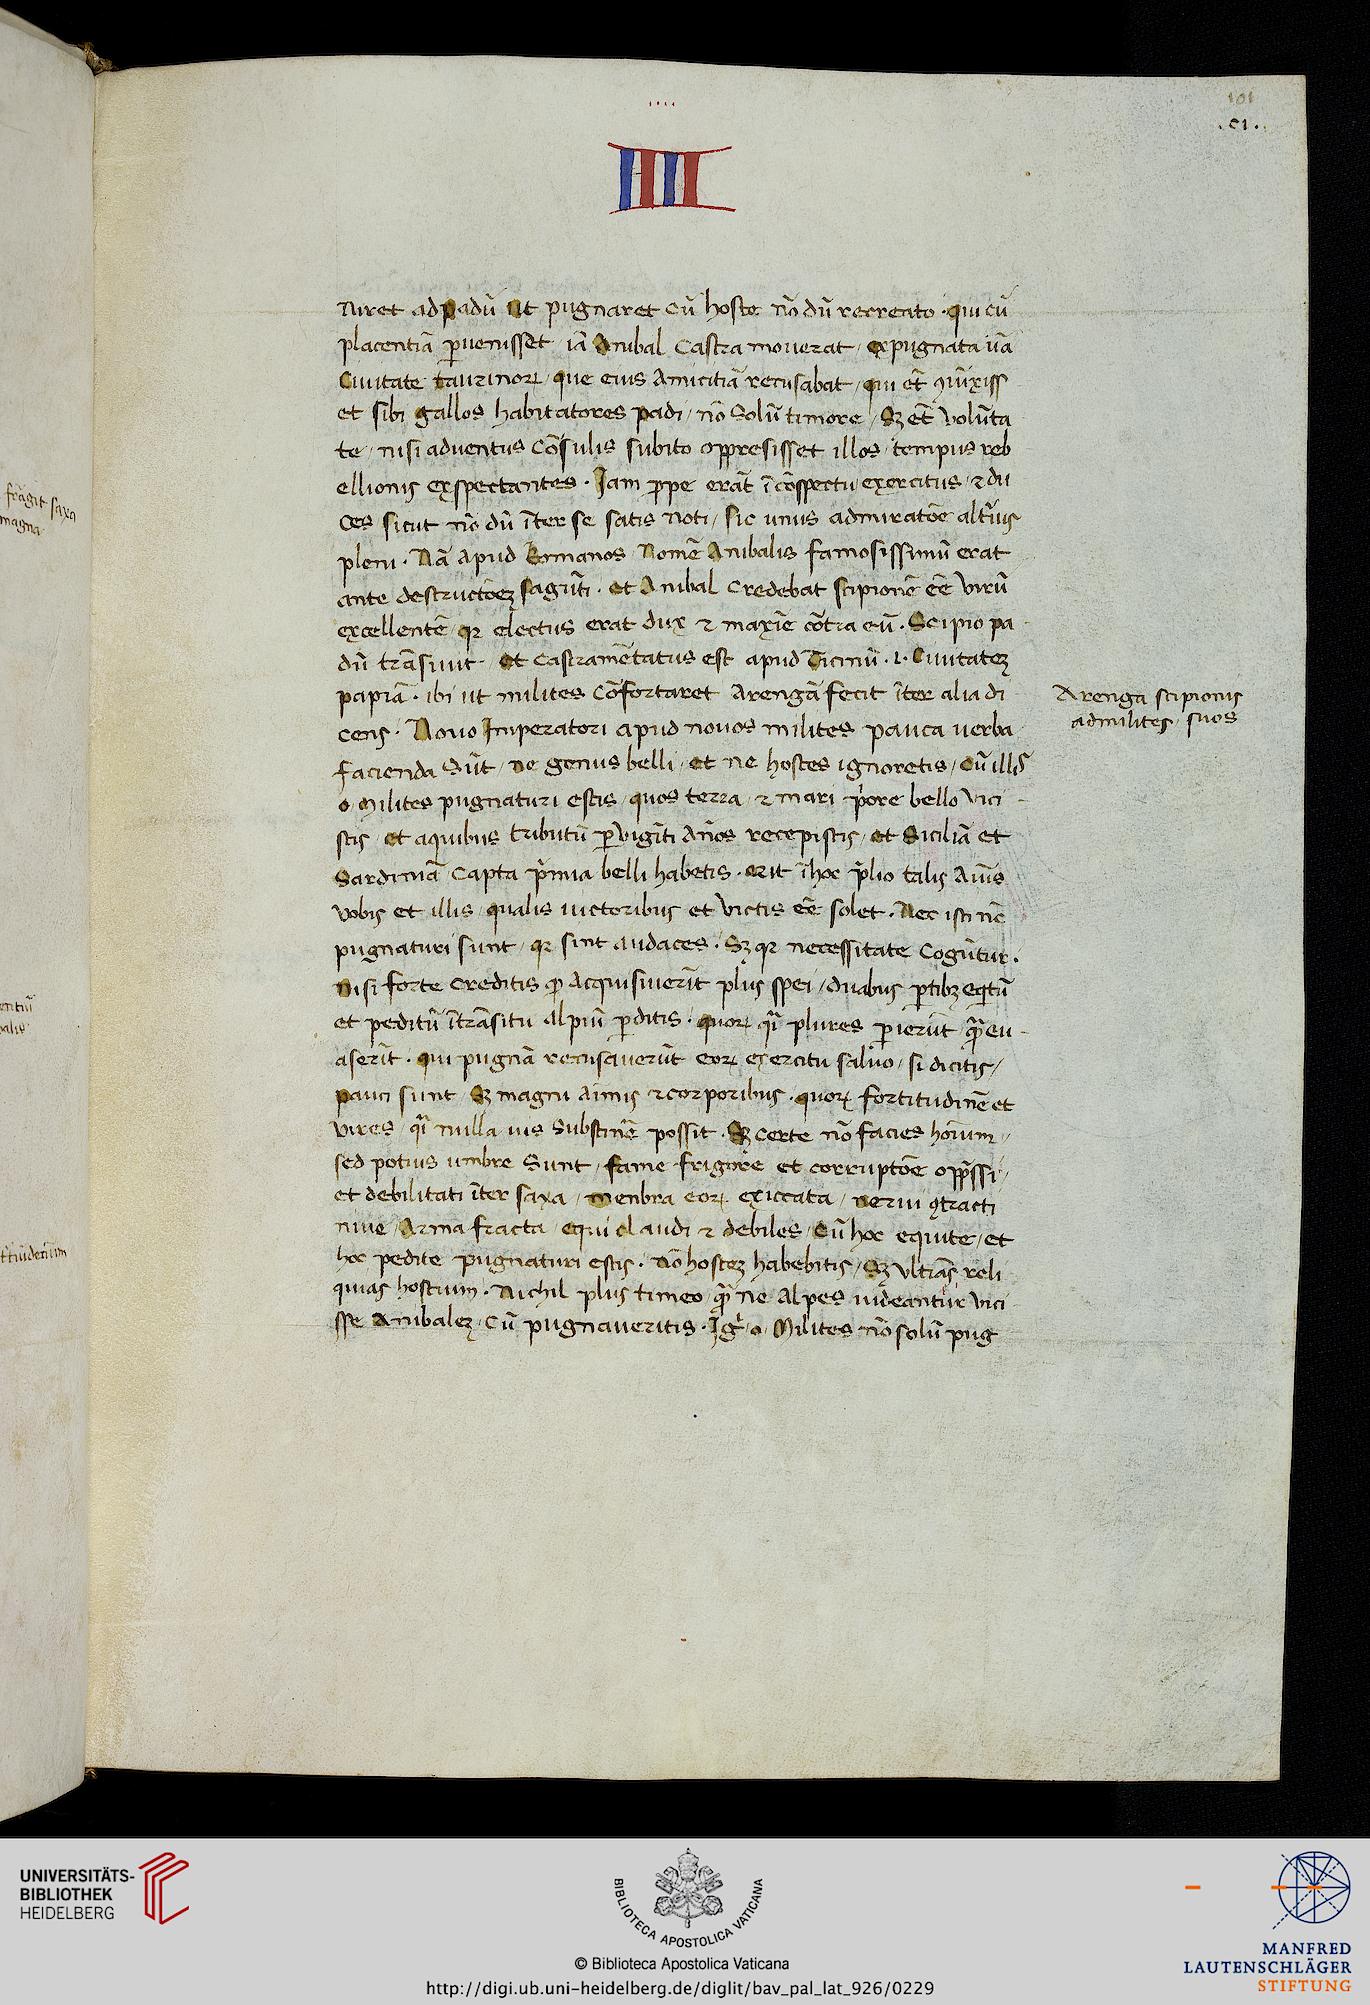 101
.CI.
IIII
niret ad padū Ut pugnaret cū hoste nō dū recreato · qui cū
placentiā ꝑuenisset iā Anibal Castra mouerat, expugnata ūa
Ciuitate taurinoꝝ, que eius Amicitiā recusabat, qui et̄ ꝯiūxiss
et sibi gallos habitatores padi, nō Solū timore, Sꝫ et̄ Volūta
te, nisi aduentus Cōsulis subito oppresisset illos, tempus reb
ellionis exspectantes. Jam ꝓpe erāt ī cōspectu exercitus, ⁊ du
ces sicut nō dū īter se satis noti, sic unus admiratōe altīus
pleni. Nā Apud Romanos Nomē Anibalis famosissimū erat
ante destructōeꝫ sagūti. et Anibal Credebat scipionē ēe Virū
excellentē, qꝛ electus erat dux ⁊ maxīe cōtra eū. Scipio pa
dū trāsiuit. et Castramētatus est apud Ticinū .i. Ciuitateꝫ
papiā. ibi ut milites Cōfortaret Arengā fecit īter alia di
cens. Nouo Imperatori apud nouos milites pauca uerba
facienda Sūt, ne genus belli, et ne hostes ignoretis, Cū illis
o Milites pugnaturi estis, quos terra, ⁊ mari p̄ore bello Vici
stis, et aquibus tributū ꝑ Vigīti Ānos recepistis, et Siciliā et
Sardiniā Capta p̄mia belli habetis. erit ī hoc p̄lio talis Aīus
Vobis et illis, qualis uictoribus et Victis ēe solet. Nec isti nc̄
pugnaturi sunt, qꝛ sint audaces. Sꝫ qꝛ necessitate Cogūtur.
Nisi forte Creditis ꝙ Acquisiuerīt plus spei, duabus ꝑtibꝫ eqtū
et peditū ītrāsitu Alpiū ꝑditis. quoꝝ qī plures ꝑierūt qā eu
aserīt. qui pugnā recusauerūt eoꝝ exercitu saluo, si dicitis,
pauci sunt Sꝫ magni Aīmis ⁊ corporibus. quoꝝ fortitudinē et
uires, qī nulla uis Substinē possit. Sꝫ Certe nō facies hoīum,
sed potius umbre Sunt, fame frigore et corruptōe opp̄ssi,
et debilitati īter saxa, menbra eoꝝ exiccata, nerui ꝯtracti
niue, Arma fracta, equi claudi ⁊ debiles, Cū hoc equite, et
hoc pedite pugnaturi estis. Nō hosteꝫ habebitis, Sꝫ Vltīas reli
quias hostium. Nichil plus timeo qā ne Alpes uideantur Vici
sse Anibaleꝫ, Cū pugnaueritis. Igr̄ o Milites nō solū pug
Arenga scipionis
ad milites suos
frāgit saxa
magna
UNIVERSITÄTS-
BIBLIOTHEK
HEIDELBERG
BIBLIOTECA APOSTOLICA VATICANA
© Biblioteca Apostolica Vaticana
http://digi.ub.uni-heidelberg.de/diglit/bav_pal_lat_926/0229
MANFRED
LAUTENSCHLÄGER
STIFTUNG